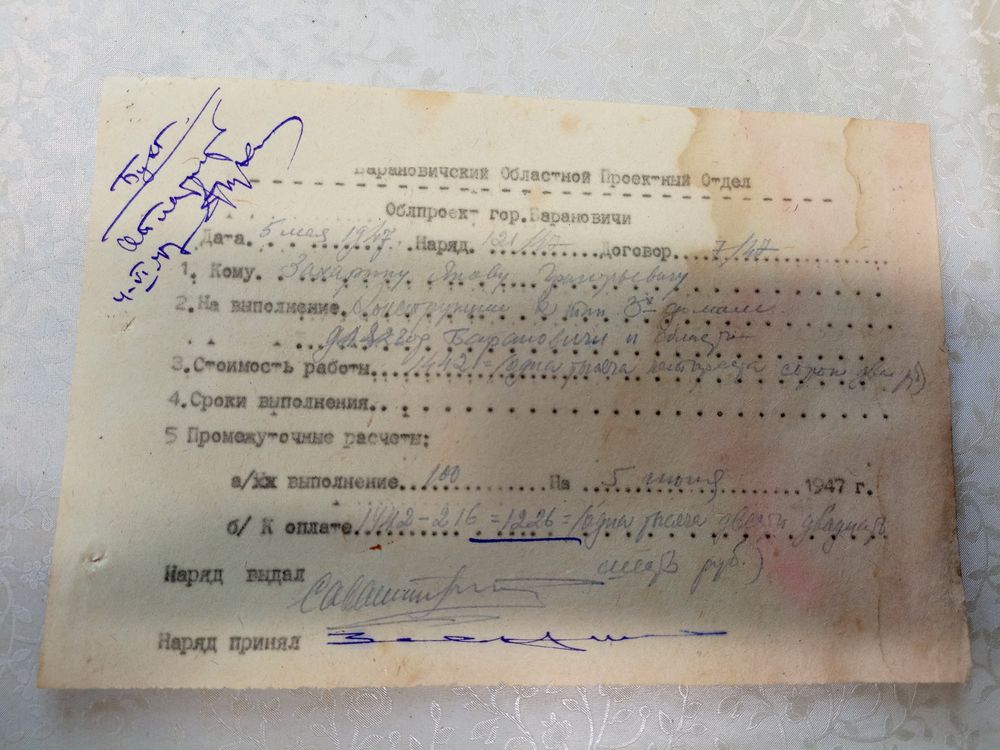 Бухг.
4-VI-47
Барановичский Областной Проектный Отдел
Облпроект гор.Барановичи
Дата. 5 мая 1947. Наряд. 121/47 Договор. 7/47
1. Кому. Захарину Якову Григорьевичу
2. На выполнение. Конструкции к тип 3х домам
для гор Барановичи и области
3. Стоимость работы. 1442= /одна тысяча четыреста сорок два руб)
4. Сроки выполнения.
5 Промежуточные расчеты:
а/хх выполнение. 100 На 5 июня 1947 г.
б/ К оплате. 1442-216=1226= /одна тысяча двести двадцать
шесть руб.)
Наряд выдал
Наряд принял